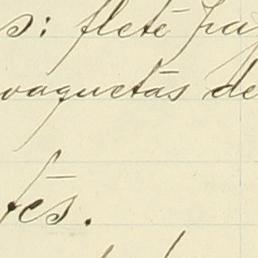 s: flete pa
vaquetas de
tes.